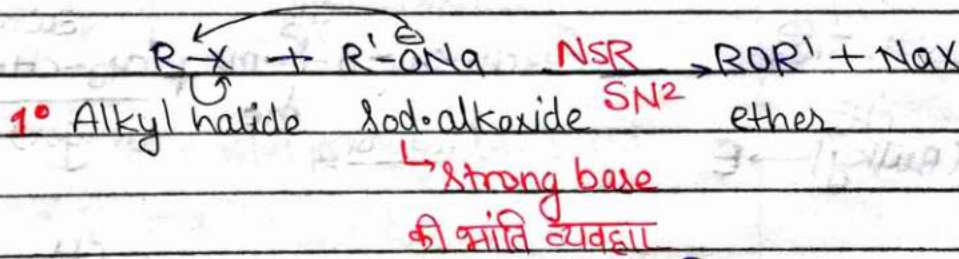 R-X + R'-O⊖Na NSR/SN² → ROR' + NaX
1° Alkyl halide Sod. alkoxide ether
↳ strong base
की भांति व्यवहार